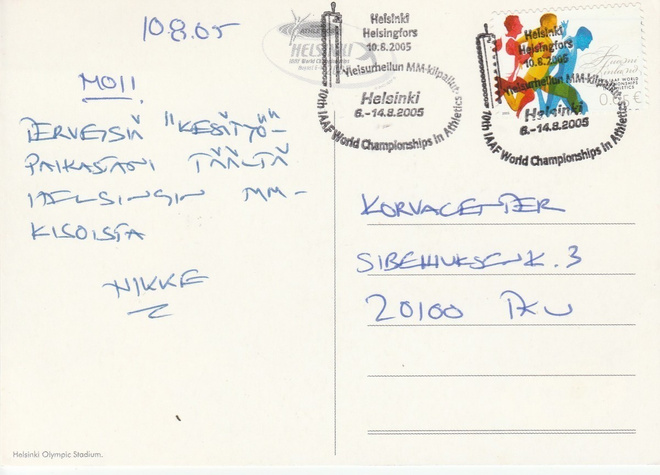 10.8.05
MOI!
TERVEISIÄ "KESÄTYÖ"-
PAIKASTANI TÄÄLTÄ
HELSINGIN MM-
KISOISTA
NIKKE
Helsinki Olympic Stadium.
HELSINKI
Helsinki
Helsingfors
10.8.2005
Yleisurheilun MM-kilpailut
Helsinki
6.-14.8.2005
10th IAAF World Championships in Athletics
Helsinki
Helsingfors
10.8.2005
Yleisurheilun MM-kilpailut
Helsinki
6.-14.8.2005
10th IAAF World Championships in Athletics
0,65 €
KORVACENTER
SIBELIUKSENK. 3
20100 TKU